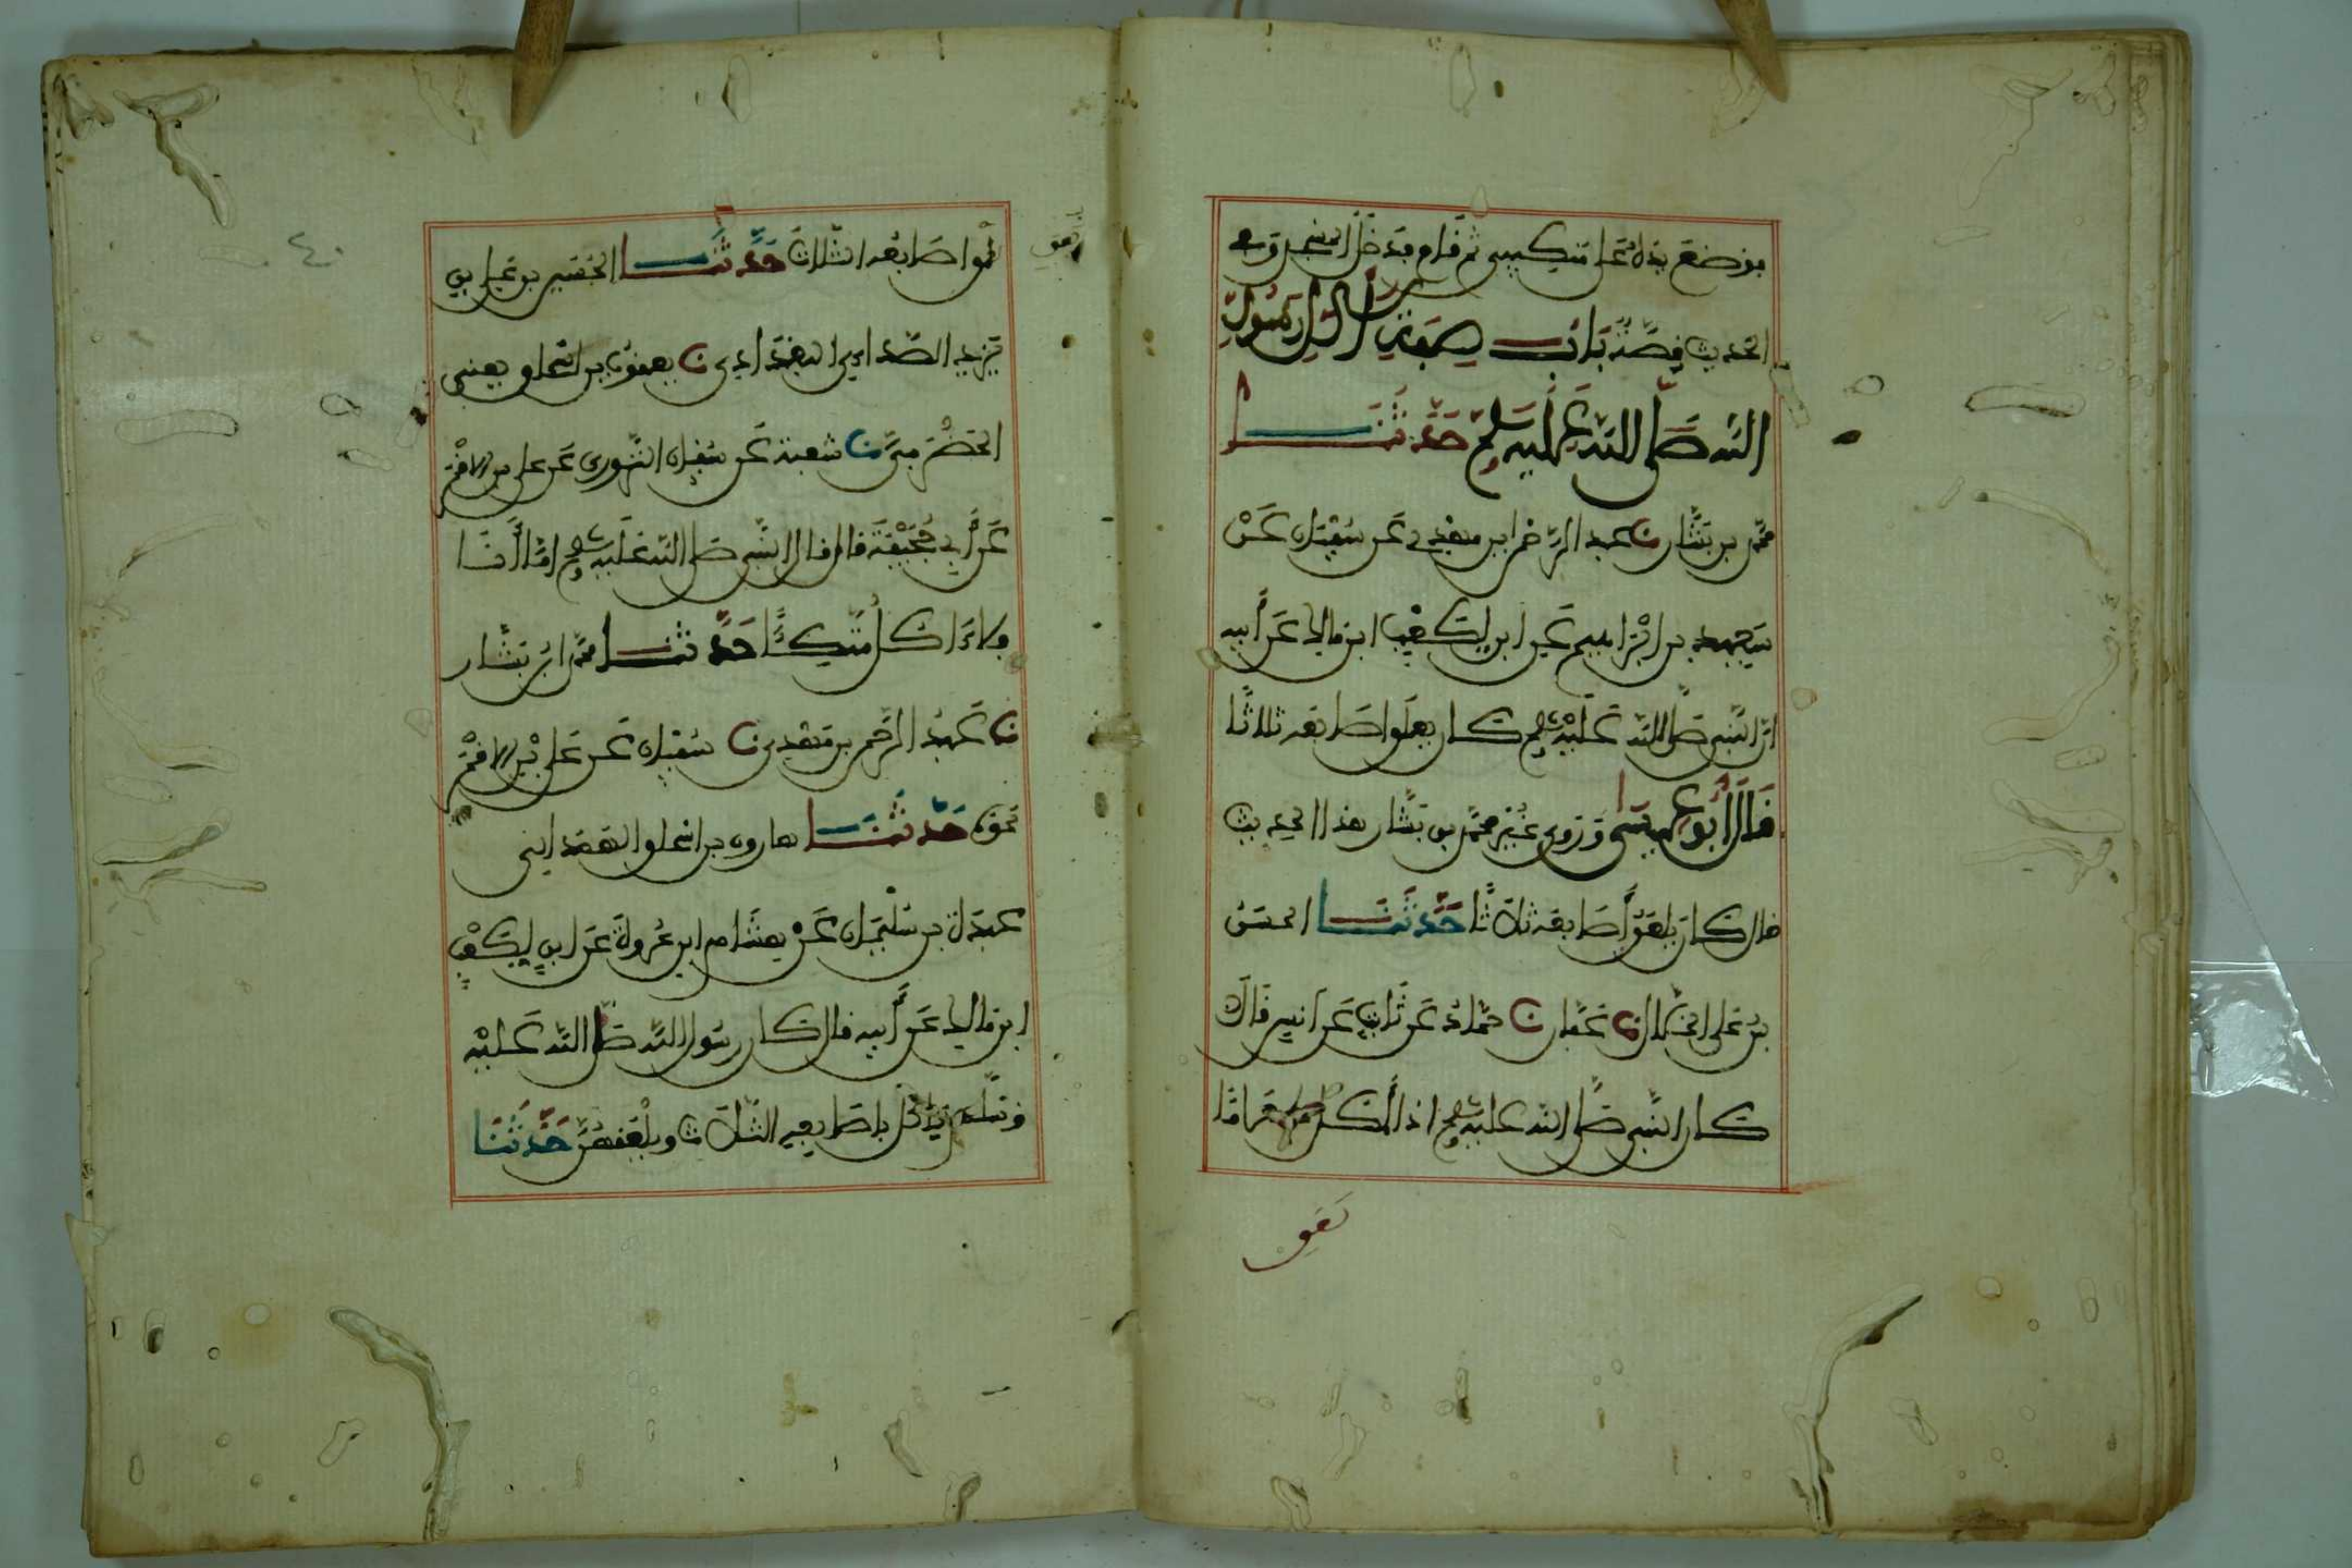 فوضع يده على منكبيه ثم قام فدخل المسجد وفي
الحديث قصة باب صفة أكل رسول
الله صلى الله عليه وسلم حدثنا
محمد بن بشار نا عبد الرحمن ابن مهدي عن سفيان عن
سعيد بن ابراهيم عن ابن لكعب ابن مالك عن أبيه
ان النبي صلى الله عليه وسلم كان يلعق اصابعه ثلاثا
قال أبو عيسى وروى غير محمد بن بشار هذا الحديث
قال كان يلعق أصابعه ثلاثا حدثنا الحسن
بن علي الخلال نا عفان نا حماد عن ثابت عن انس قال
كان النبي صلى الله عليه وسلم اذا أكل طعاما
لعق
لعق اصابعه الثلاث حدثنا الحسين بن علي بن
يزيد الصداءي البغدادي نا يعقوب بن اسحاق يعني
الحضرمي نا شعبة عن سفيان الثوري عن علي بن الاقمر
عن أبي جحيفة قال قال النبي صلى الله عليه وسلم اما أنا
فلا ءاكل متكئا حدثنا محمد ابن بشار
نا عبد الرحمن بن مهدي نا سفيان عن علي بن الاقمر
نحوه حدثنا هارون بن اسحاق الهمداني
عبدة بن سليمان عن هشام ابن عروة عن ابن لكعب
ابن مالك عن أبيه قال كان رسول الله صلى الله عليه
وسلم ياكل باصابعه الثلاث ويلعقهن حدثنا
٤٠